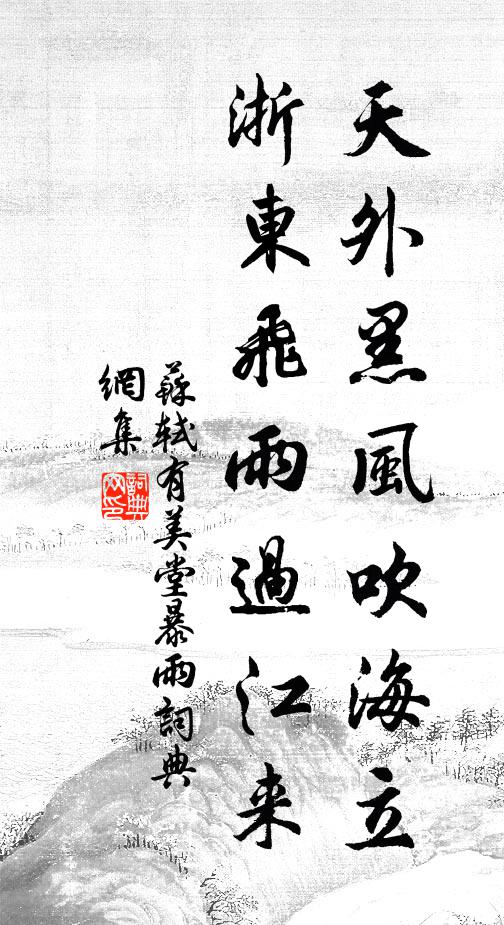 天外黑風吹海立
浙東飛雨過江来
蘇軾有美堂暴雨詞典
網集
詞典
网印